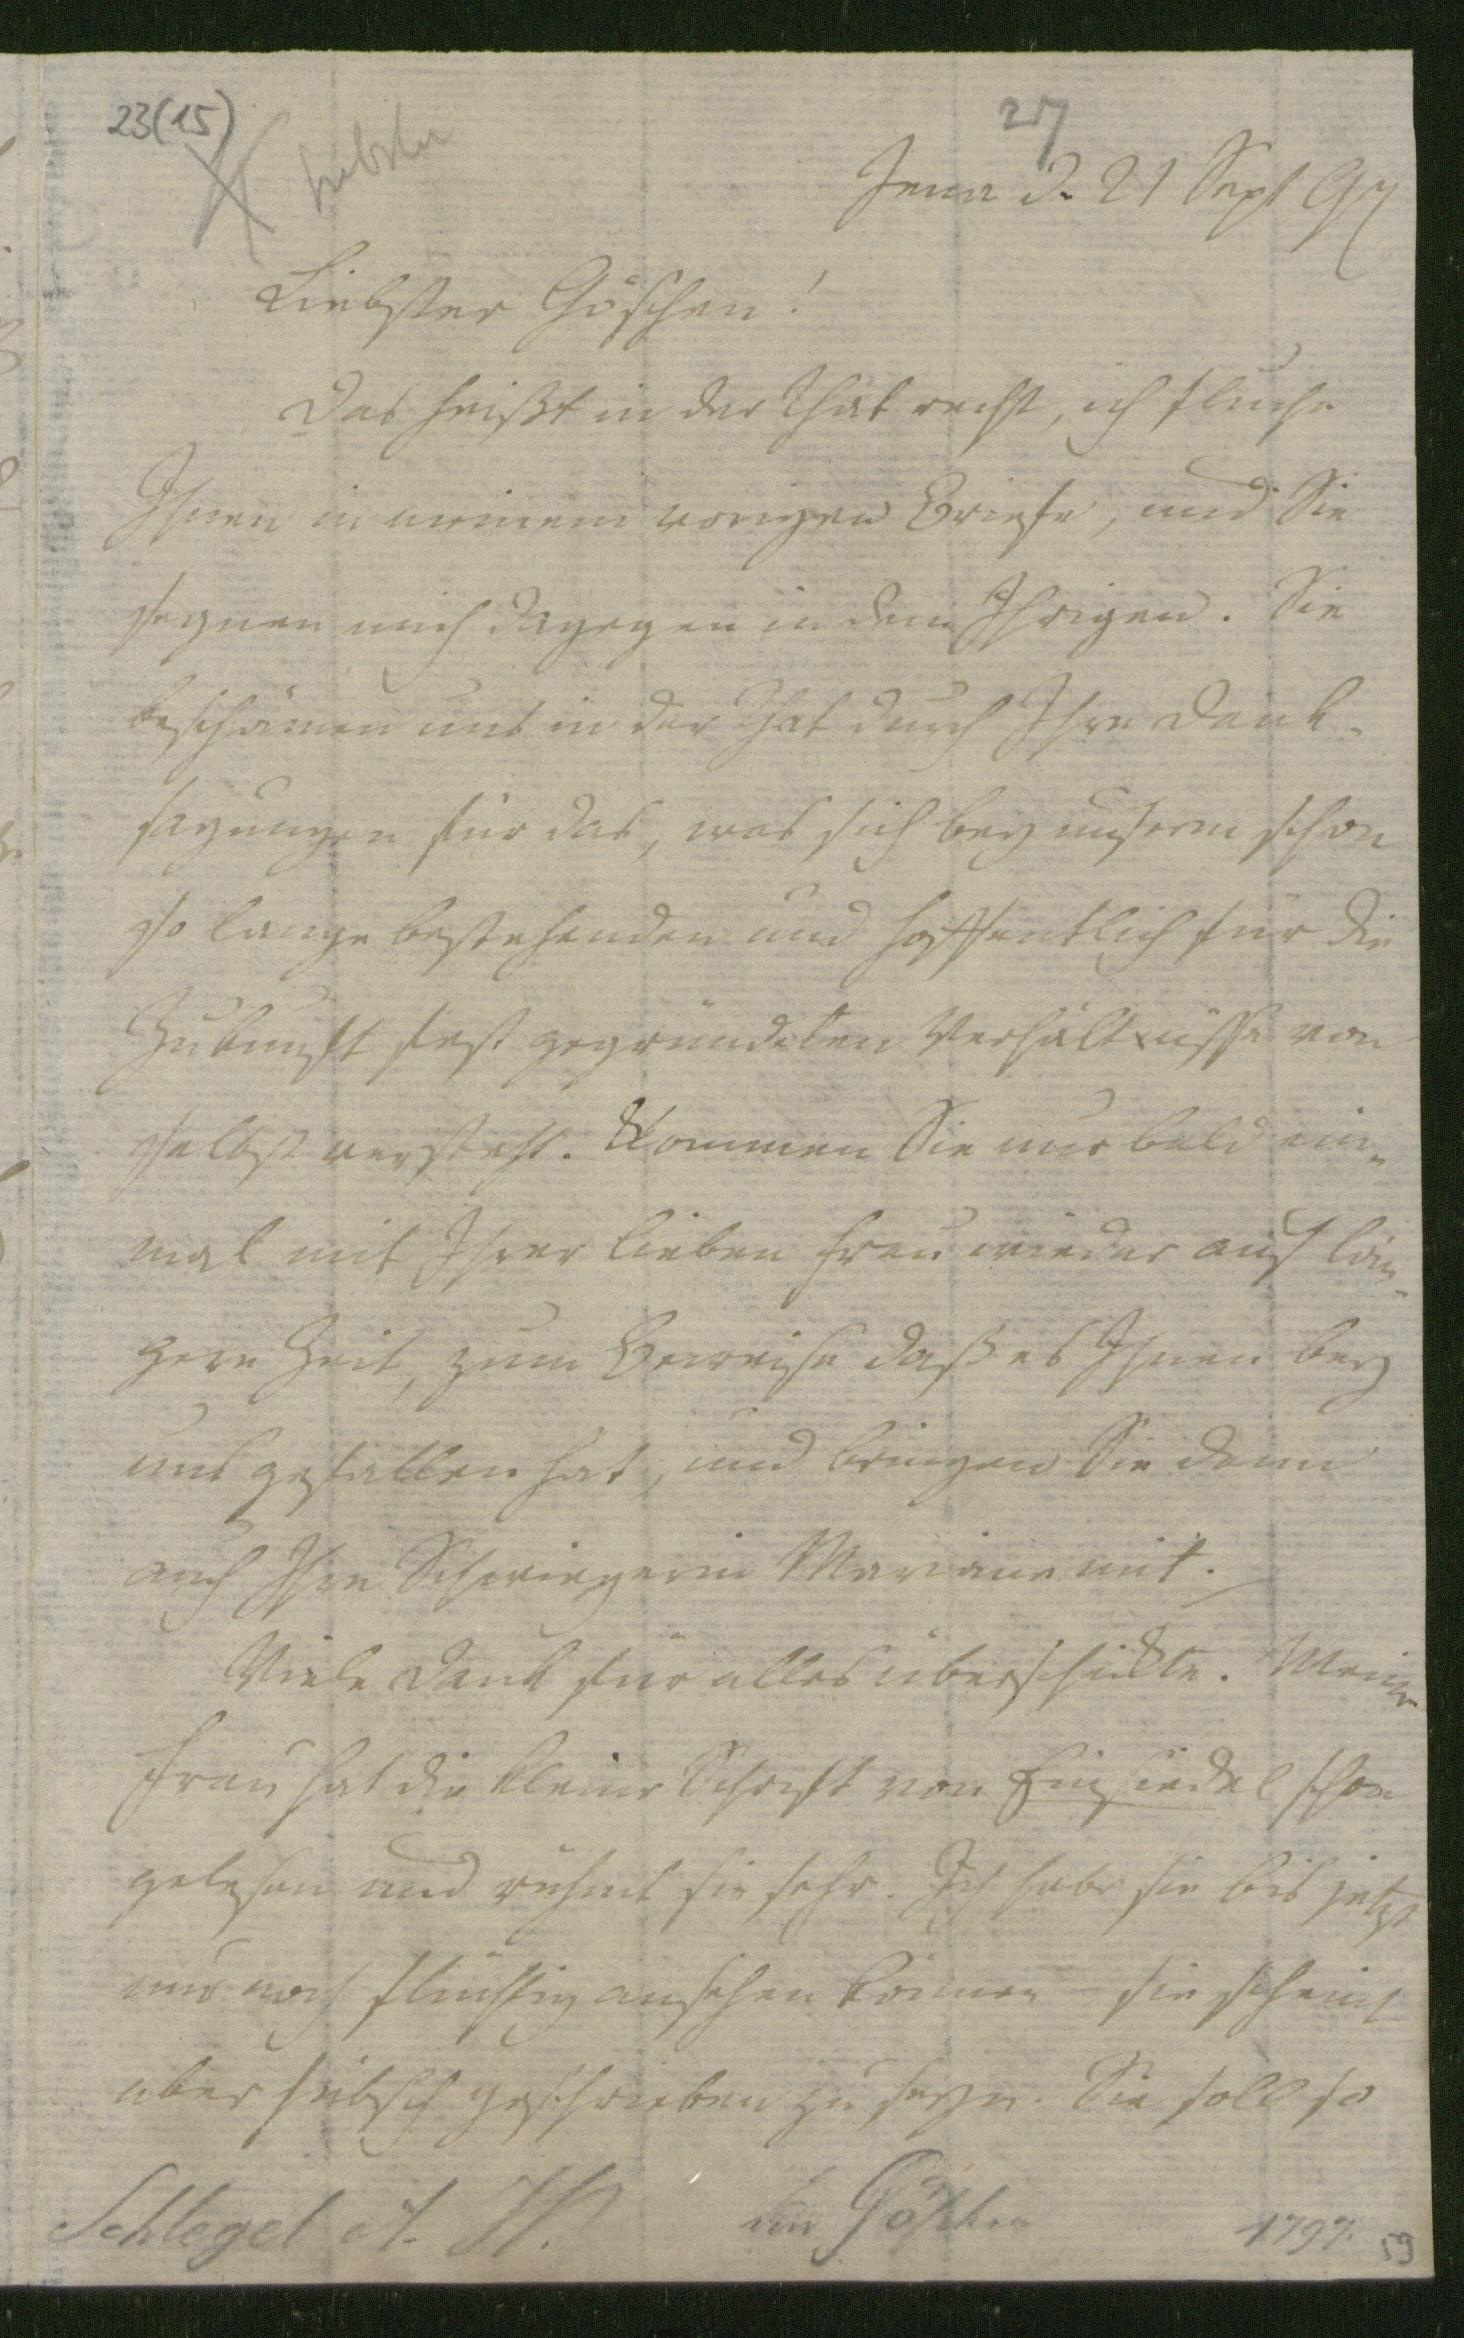 23(15)
27
Jena d. 21 Sept 97
Liebster Göschen!
Das heißt in der That recht, ich fluche
Ihnen in meinem vorigen Briefe, und Sie
segnen mich dagegen in dem Ihrigen. Sie
beschämen uns in der That durch Ihre Dank-
sagungen für das, was sich bey unserm schon
so lange bestehenden und hoffentlich für die
Zukunft fest gegründeten Verhältnisse von
selbst versteht. Kommen Sie nur bald ein-
mal mit Ihrer lieben Frau wieder auf län-
gere Zeit, zum Beweise daß es Ihnen bey
uns gefallen hat, und bringen Sie dann
auch Ihre Schwiegerin Mariane mit.
Viele Dank für alles überschickte. Meine
Frau hat die kleine Schrift von Einsiedel schon
gelesen und rühmt sie sehr. Ich habe sie bis jetzt
nur noch flüchtig ansehen können – sie scheint
aber hübsch geschrieben zu seyn. Sie soll so
Schlegel A. W. an Göschen 1797. 59